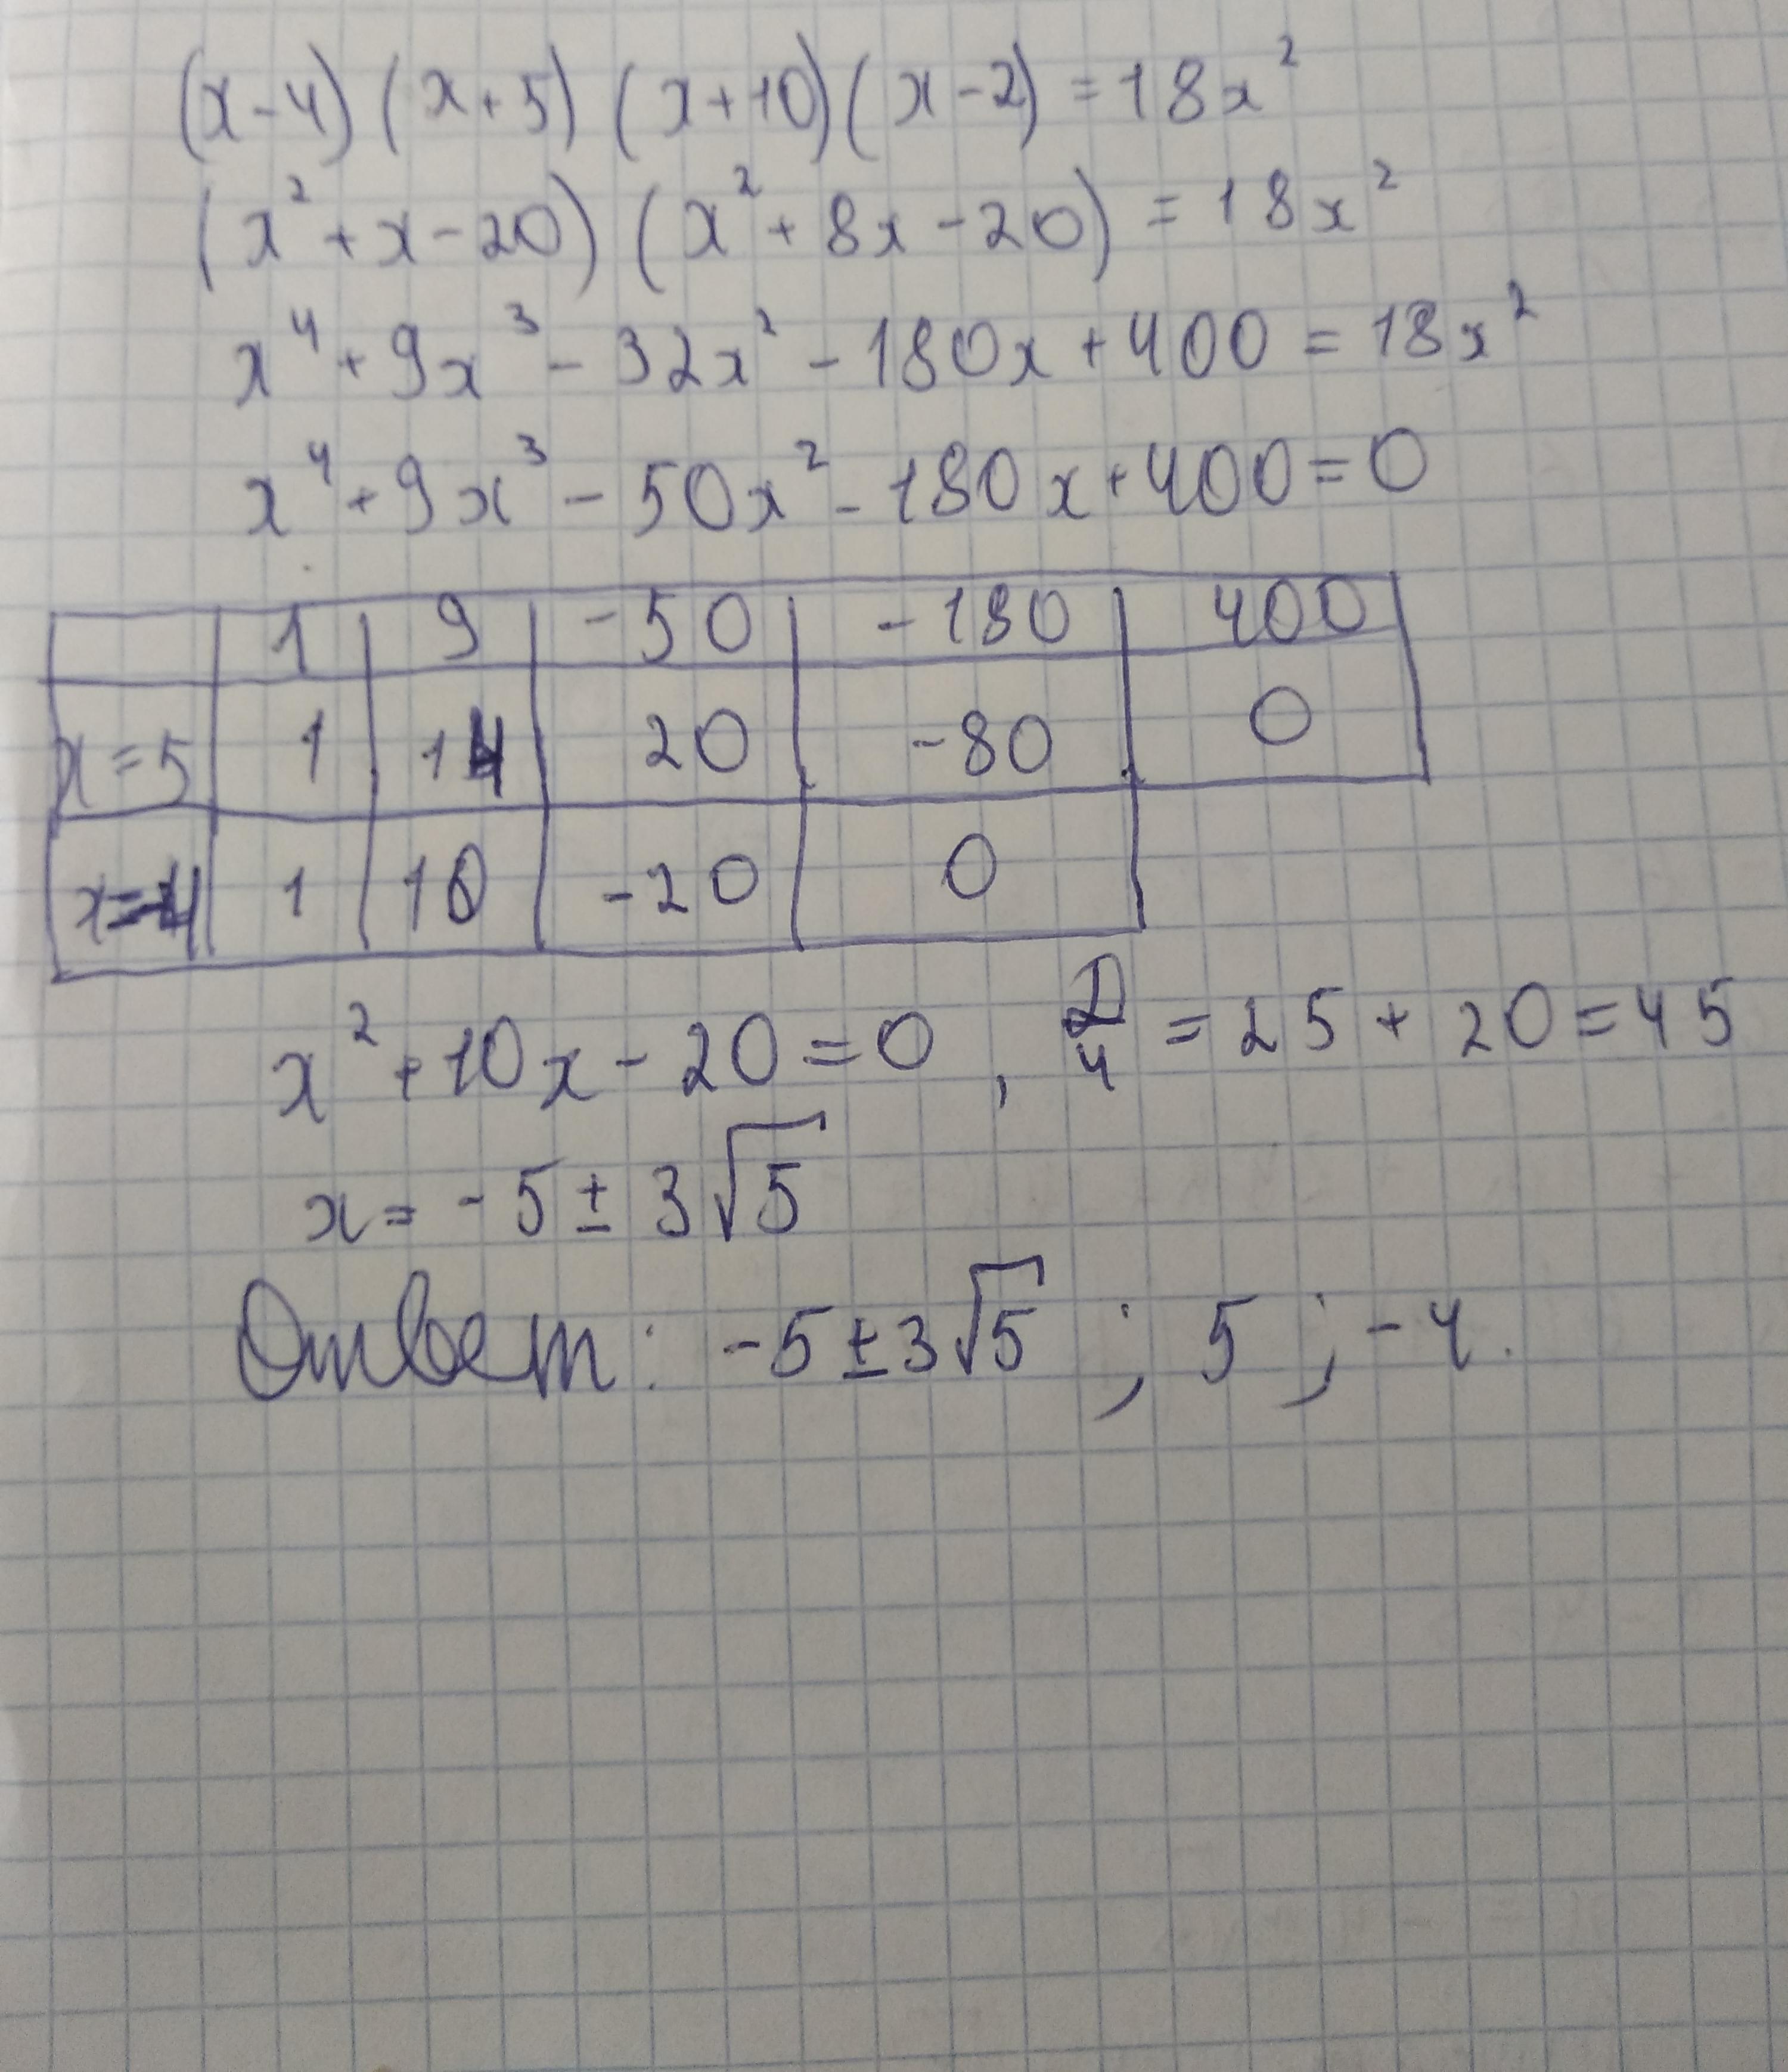 (x-4)(x+5)(x+10)(x-2)=18x²
(x²+x-20)(x²+8x-20)=18x²
x⁴+9x³-32x²-180x+400=18x²
x⁴+9x³-50x²-180x+400=0
1 9 -50 -180 400
x=5 1 14 20 -80 0
x=-4 1 10 -20 0
x²+10x-20=0, D/4=25+20=45
x=-5±3√5
Ответ: -5±3√5; 5; -4.